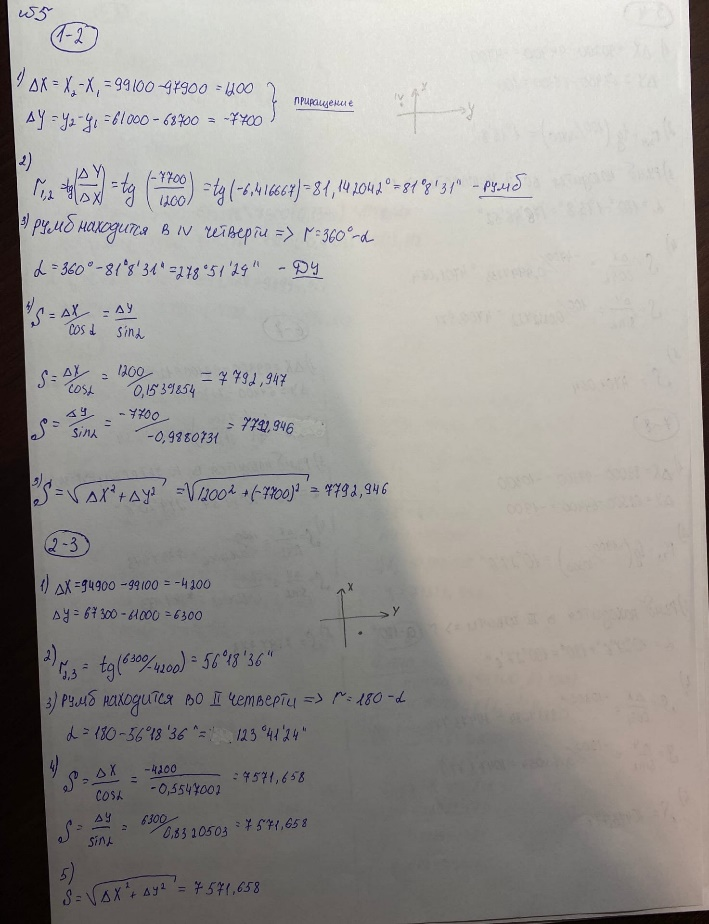 №5
1-2
1) ΔX = X₂ - X₁ = 99100 - 97900 = 1200
приращение
ΔY = y₂ - y₁ = 61000 - 68700 = -7700
IV X Y
2) r₁,₂ = tg(ΔY/ΔX) = tg(-7700/1200) = tg(-6,416667) = 81,142042° = 81°8'31" - румб
3) румб находится в IV четверти => r = 360° - α
α = 360° - 81°8'31" = 278°51'29" - ДУ
4) S = ΔX/cosα = ΔY/sinα
S = ΔX/cosα = 1200/0,1539854 = 7792,947
S = ΔY/sinα = -7700/-0,9880731 = 7792,946
5) S = √ΔX² + ΔY² = √1200² + (-7700)² = 7792,946
2-3
1) ΔX = 94900 - 99100 = -4200
X Y
ΔY = 67300 - 61000 = 6300
2) r₂,₃ = tg(6300/-4200) = 56°18'36"
3) румб находится во II четверти => r = 180 - α
α = 180 - 56°18'36" = 123°41'24"
4) S = ΔX/cosα = -4200/-0,5547002 = 7571,658
S = ΔY/sinα = 6300/0,8320503 = 7571,658
5)
S = √ΔX² + ΔY² = 7571,658